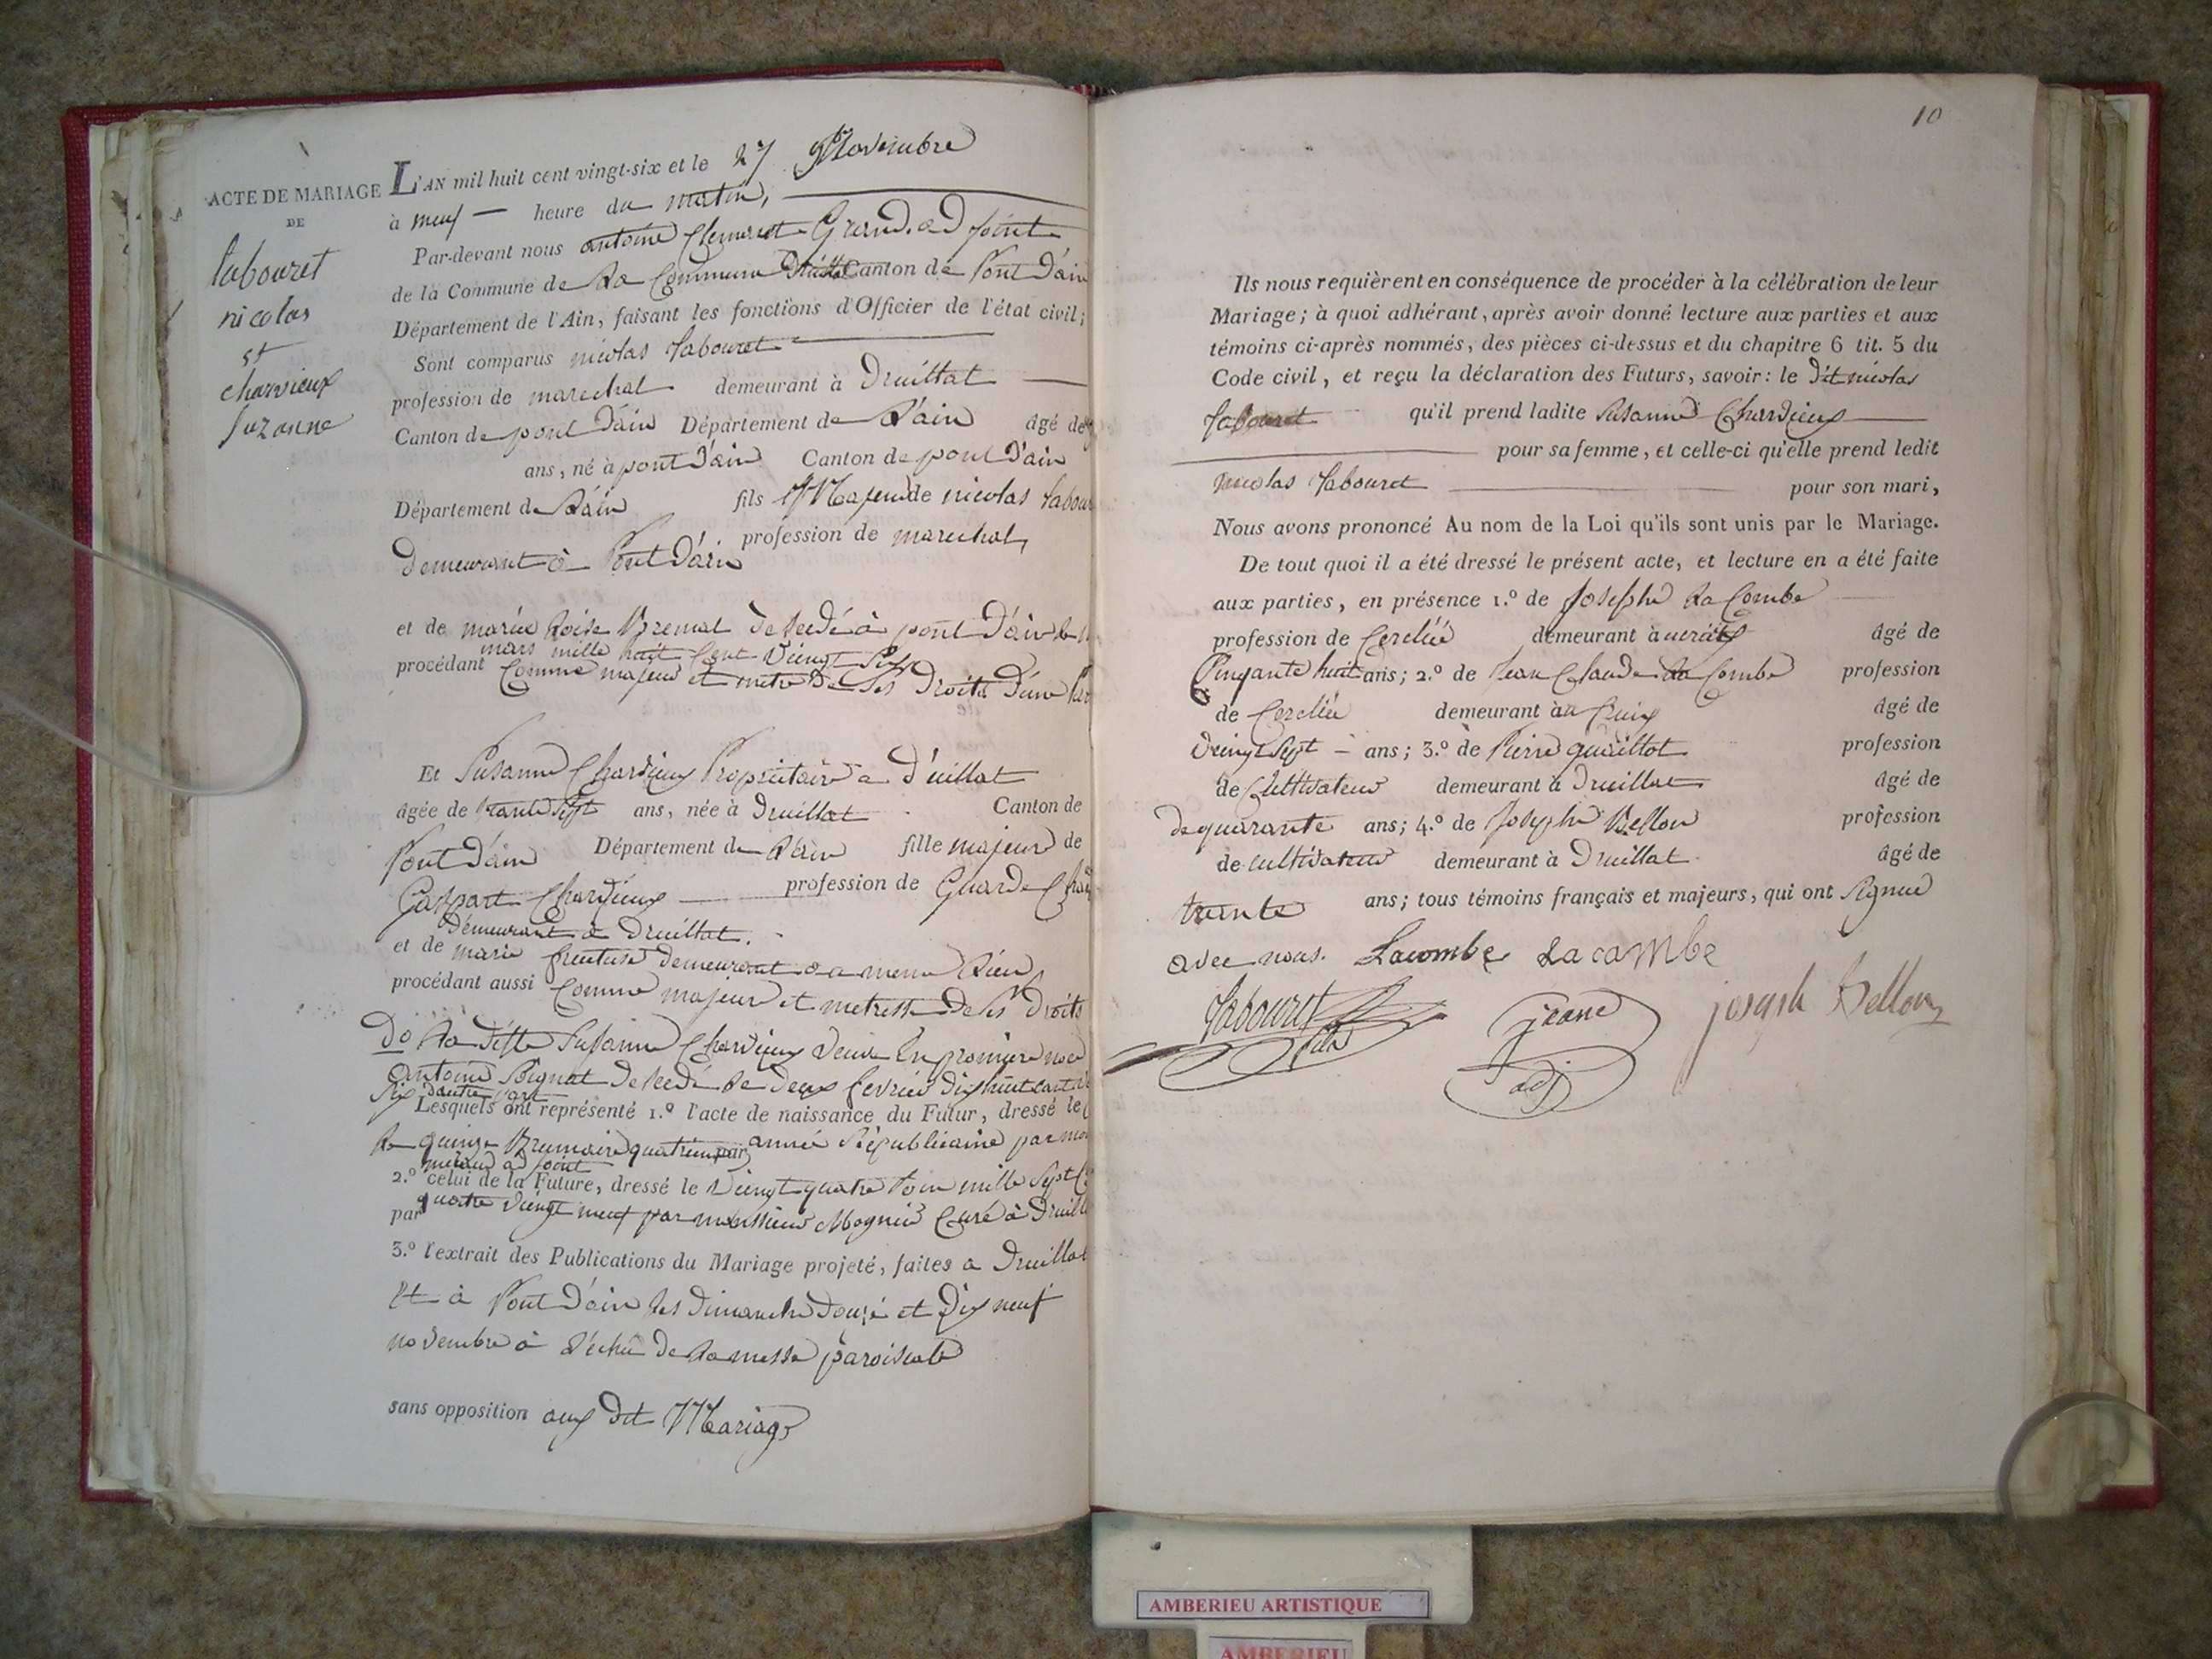 ACTE DE MARIAGE
DE
labouret
nicolas
et
charvieux
suzanne
L'AN mil huit cent vingt-six et le 27 Novembre
à neuf heure du matin,
Par-devant nous antoine Clemant Grand adjoint
de la Commune de la Commune Canton de Pont D'ain
Département de l'Ain, faisant les fonctions d'Officier de l'état civil;
Sont comparus nicolas labouret
profession de marechal demeurant à Druillat
Canton de pont D'ain Département de l'ain âgé de
ans, né à pont D'ain Canton de pont D'ain
Département de l'ain fils Majeur de nicolas
profession de marechal,
Demeurant à Pont D'ain
et de marie Bremal à pont D'ain
mars mille huit Cent vingt
procédant Comme majeur et metre De Ses Droits D'une
Et Susanne Charvieux Propriétaire a D'uillat
âgée de trante sept ans, née à Druillat Canton de
Pont D'ain Département de l'ain fille majeur de
Gaspart Charvieux profession de Guarde
Demeurant à Druillat.
et de marie Demeurant a meme
procédant aussi Comme majeur et metresse de ses Droits
la ditte Susanne Charvieux veuve En promiere
antoine De deux fevrier Dix huit cent
Six d'autre part
Lesquels ont représenté 1.º l'acte de naissance du Futur, dressé le
le quinze Brumaire quatrieme année Republicaine par
adjoint
2.º celui de la Future, dressé le vingt quatre mille Sept
quatre vingt neuf
par par monssieur Mognié Curé à
3.º l'extrait des Publications du Mariage projeté, faites a Druillat
Et à Pont D'ain les Dimanche Douze et Dix neuf
novembre à De la messe paroisiale
sans opposition aux dit Mariage
10
Ils nous requièrent en conséquence de procéder à la célébration de leur
Mariage; à quoi adhérant, après avoir donné lecture aux parties et aux
témoins ci-après nommés, des pièces ci-dessus et du chapitre 6 tit. 5 du
Code civil, et reçu la déclaration des Futurs, savoir: le Dit nicolas
labouret qu'il prend ladite Susanne Charvieux
pour sa femme, et celle-ci qu'elle prend ledit
nicolas labouret pour son mari,
Nous avons prononcé Au nom de la Loi qu'ils sont unis par le Mariage.
De tout quoi il a été dressé le présent acte, et lecture en a été faite
aux parties, en présence 1.º de Joseph la Combe
profession de demeurant à âgé de
Cinqante huit ans; 2.º de Jean Claude la Combe profession
de demeurant à âgé de
vingt Sept ans; 3.º de Pierre profession
de Cultivateur demeurant à Druillat âgé de
de quarante ans; 4.º de Joseph Bellon profession
de cultivateur demeurant à Druillat âgé de
trente ans; tous témoins français et majeurs, qui ont Signée
avec nous. Lacombe Lacambe
labouret fils
adj
joseph Bellon
AMBERIEU ARTISTIQUE
AMBERIEU